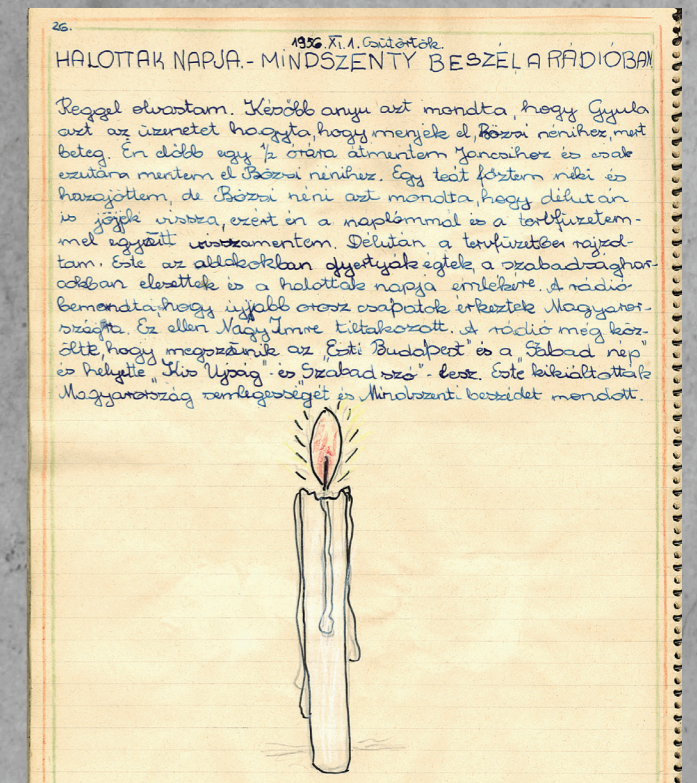 26.
1956. XI. 1. Csütörtök.
HALOTTAK NAPJA.- MINDSZENTY BESZÉL A RÁDIÓBAN
Reggel olvastam. Később anyu azt mondta, hogy Gyula
azt az üzenetet hagyta, hogy menjek el, Bözsi nénihez, mert
beteg. Én előbb egy 1/2 órára átmentem Jancsihoz és csak
ezután mentem el Bözsi nénihez. Egy teát főztem néki és
hazajöttem, de Bözsi néni azt mondta, hogy délután
is jöjjek vissza, ezért én a naplómmal és a tervfüzetem-
mel együtt visszamentem. Délután a tervfüzetbe rajzol-
tam. Este az ablakokban gyertyák égtek, a szabadsághar-
cokban elesettek és a halottak napja emlékére. A rádió
bemondta, hogy újabb orosz csapatok érkeztek Magyaror-
szágra. Ez ellen Nagy Imre tiltakozott. A rádió még köz-
ölte, hogy megszűnik az "Esti Budapest" és a "Szabad nép"
és helyette "Kis Ujság" és Szabad szó"- lesz. Este kikiáltották
Magyarország semlegességét és Mindszenti beszédet mondott.